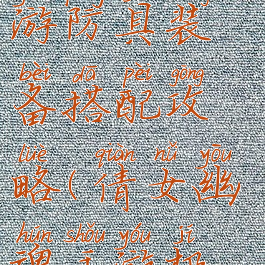 游防具装
bèi dā pèi gōng
备搭配攻
lüè qiàn nǚ yōu
略(倩女幽
hún shǒu yóu jī
魂手游极